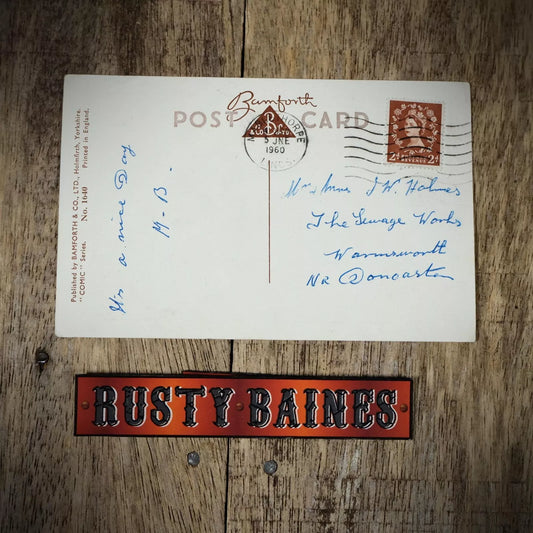 Bamforth
POST CARD
B
& CO LTD
THORPE
5 JNE
1960
LINCS
2d POSTAGE REVENUE 2d
Published by BAMFORTH & CO., LTD., Holmfirth, Yorkshire.
"COMIC" Series. No. 1640 Printed in England.
It's a nice Day
M-B-
Mr & Mrs J. W. Holmes
The Sewage Works
Warmsworth
Nr Doncaster
RUSTY BAINES